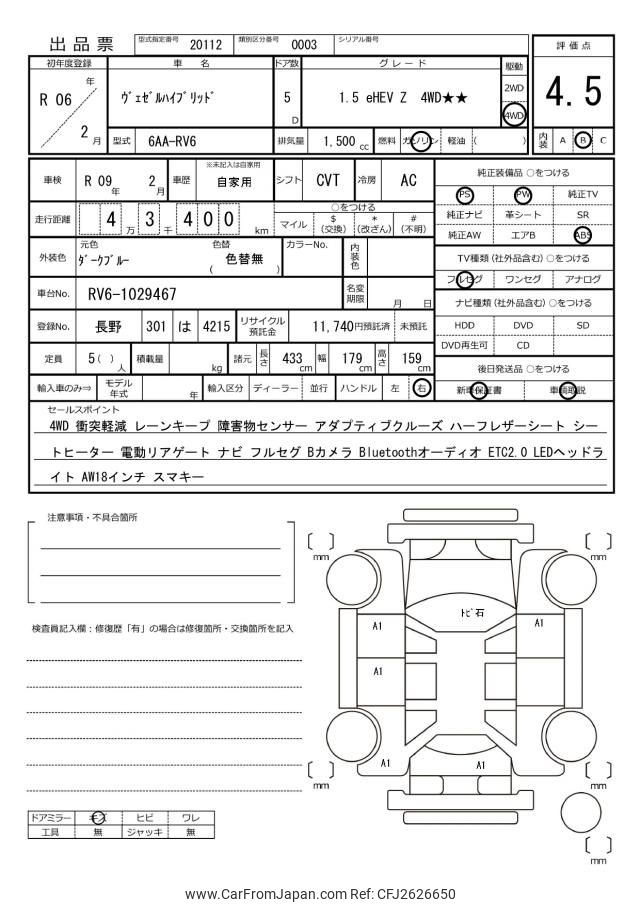 出品票 型式指定番号 20112 類別区分番号 0003 シリアル番号
評価点
4.5
内装 A B C
初年度登録 車名 ドア数 グレード 駆動
R 06 年 2 月
ヴェゼルハイブリッド 5 D 1.5 eHEV Z 4WD★★ 2WD
4WD
型式 6AA-RV6 排気量 1,500 cc 燃料 ガソリン 軽油 ( )
車検 R 09 年 2 月 車歴 ※未記入は自家用 自家用 シフト CVT 冷房 AC
走行距離 4 万 3 千 4 0 0 km
○をつける
マイル $(交換) *(改ざん) #(不明)
外装色 元色 ダークブルー 色替 ( 色替無 ) カラーNo. 内装色
車台No. RV6-1029467 名変期限 月 日
登録No. 長野 301 は 4215 リサイクル預託金 11,740円預託済 未預託
定員 5( ) 人 積載量 kg 諸元 長さ 433 cm 幅 179 cm 高さ 159 cm
輸入車のみ⇒ モデル年式 年 輸入区分 ディーラー 並行 ハンドル 左 右
純正装備品 ○をつける
PS PW 純正TV
純正ナビ 革シート SR
純正AW エアB ABS
TV種類(社外品含む)○をつける
フルセグ ワンセグ アナログ
ナビ種類(社外品含む)○をつける
HDD DVD SD
DVD再生可 CD
後日発送品 ○をつける
新車保証書 車輌取説
セールスポイント
4WD 衝突軽減 レーンキープ 障害物センサー アダプティブクルーズ ハーフレザーシート シー
トヒーター 電動リアゲート ナビ フルセグ Bカメラ Bluetoothオーディオ ETC2.0 LEDヘッドラ
イト AW18インチ スマキー
注意事項・不具合箇所
検査員記入欄：修復歴「有」の場合は修復箇所・交換箇所を記入
mm
mm
トビ石
A1
A1
A1
A1
A1
mm
mm
mm
ドアミラー キズ ヒビ ワレ
工具 無 ジャッキ 無
www.CarFromJapan.com Ref: CFJ2626650